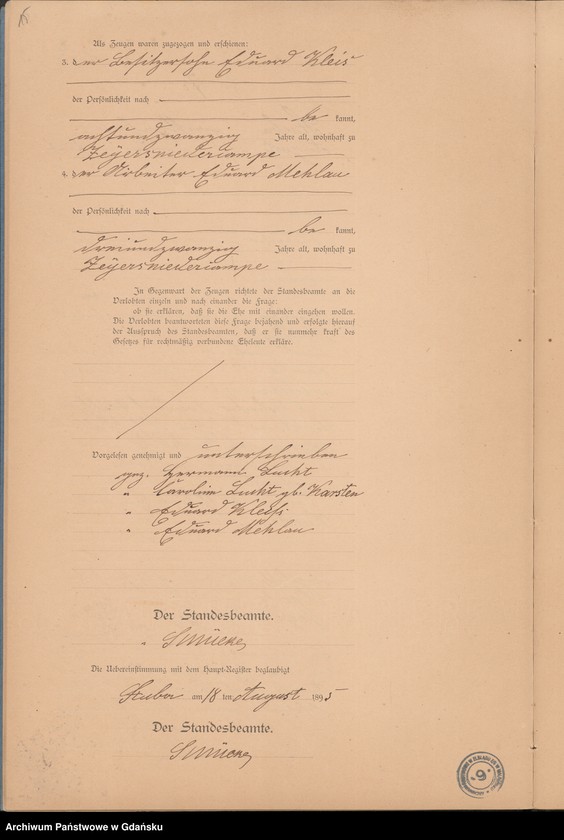 Als Zeugen waren zugezogen und erschienen:
3. der Besitzersohn Eduard Kleis
der Persönlichkeit nach
be kannt,
achtundzwanzig Jahre alt, wohnhaft zu
Zeyersniedercampe
4. der Arbeiter Eduard Mehlau
der Persönlichkeit nach
be kannt,
dreiundzwanzig Jahre alt, wohnhaft zu
Zeyersniedercampe
In Gegenwart der Zeugen richtete der Standesbeamte an die
Verlobten einzeln und nach einander die Frage:
ob sie erklären, daß sie die Ehe mit einander eingehen wollen.
Die Verlobten beantworteten diese Frage bejahend und erfolgte hierauf
der Ausspruch des Standesbeamten, daß er sie nunmehr kraft des
Gesetzes für rechtmäßig verbundene Eheleute erkläre.
Vorgelesen genehmigt und unterschrieben
gez. Hermann Lucht
" Caroline Lucht gb. Karsten
" Eduard Kleihs
" Eduard Mehlau
Der Standesbeamte.
"
Die Uebereinstimmung mit dem Haupt-Register beglaubigt
Stuba am 18 ten August 1895
Der Standesbeamte.
9
Archiwum Państwowe w Gdańsku